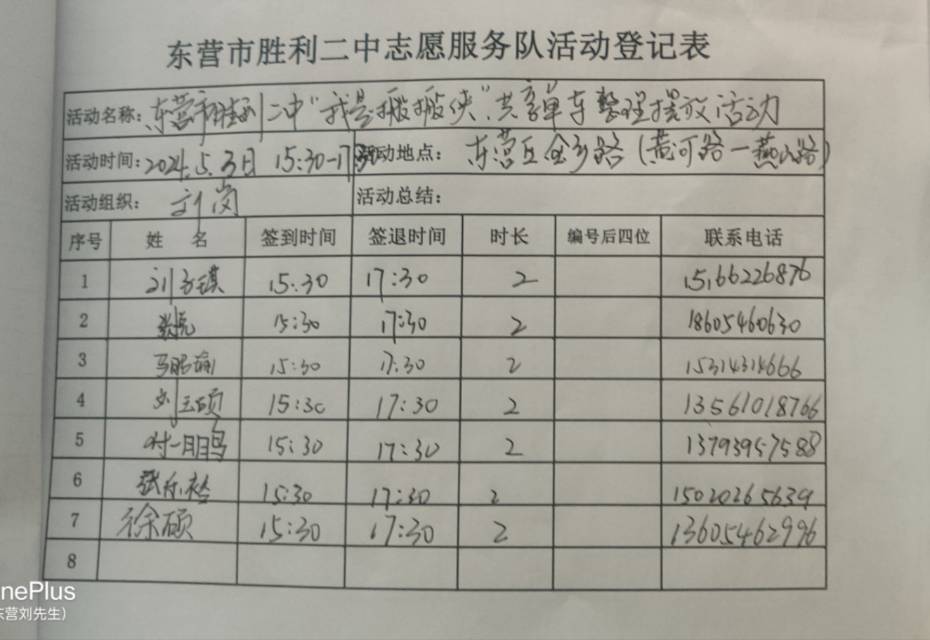 东营市胜利二中志愿服务队活动登记表
活动名称：东营市胜利二中“我是搬搬侠”共享单车整理摆放活动
活动时间：2024.5.3日 15:30-17 活动地点：东营区金乡路（黄河路一燕山路）
活动组织：刘岗 活动总结：
序号 姓名 签到时间 签退时间 时长 编号后四位 联系电话
1 刘子琪 15:30 17:30 2 15166226876
2 15:30 17:30 2 18605460630
3 15:30 17:30 2 15314314666
4 刘玉硕 15:30 17:30 2 13561018766
5 时一鹏 15:30 17:30 2 13793957588
6 张乐 15:30 17:30 2 15020265639
7 徐硕 15:30 17:30 2 13605462996
8
nePlus
东营刘先生）